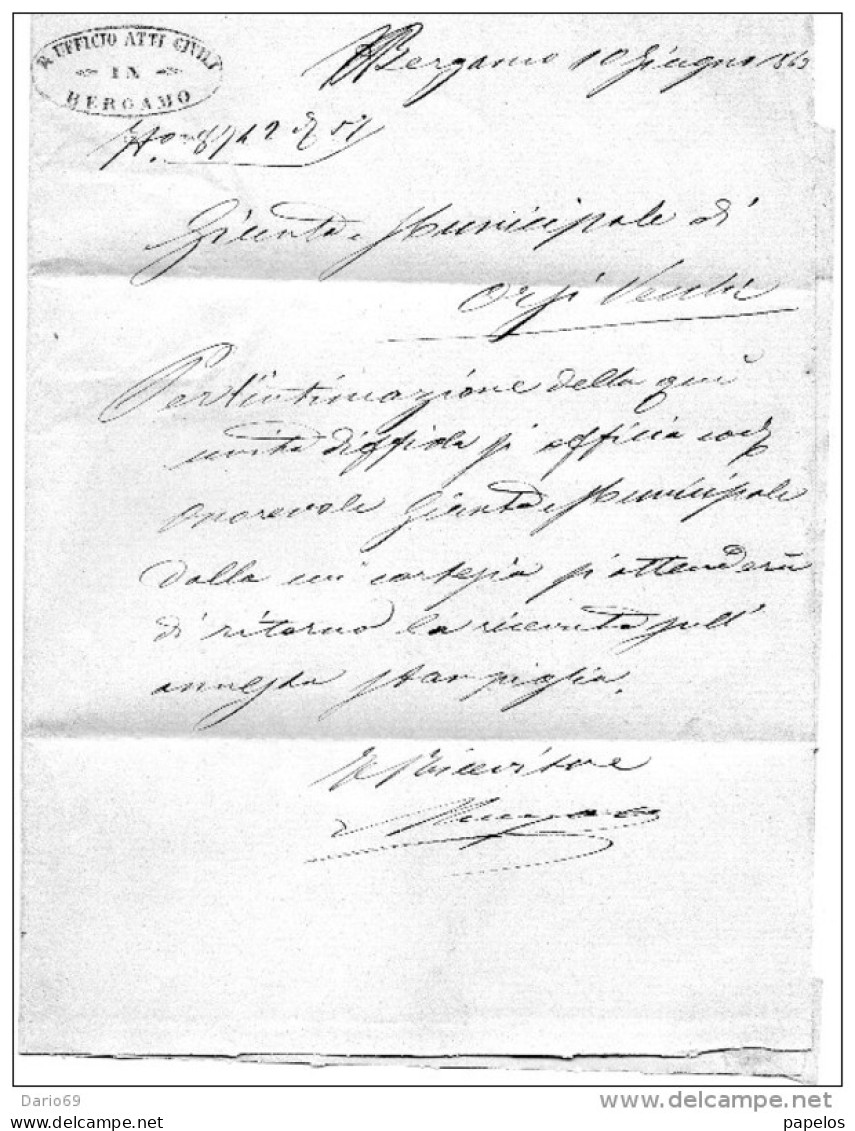 R. UFFICIO ATTI CIVILI
IN
BERGAMO
Bergamo 10 Giugno 1863
Giunta Municipale di
Orzi Vecchi
Per l'intimazione della qui
unita diffida si officia cod.
onorevole Giunta Municipale
dalla cui cortesia si attenderà
di ritorno la ricevuta sull'
annessa stampiglia.
Il Ricevitore
Dario69
www.delcampe.net
papelos